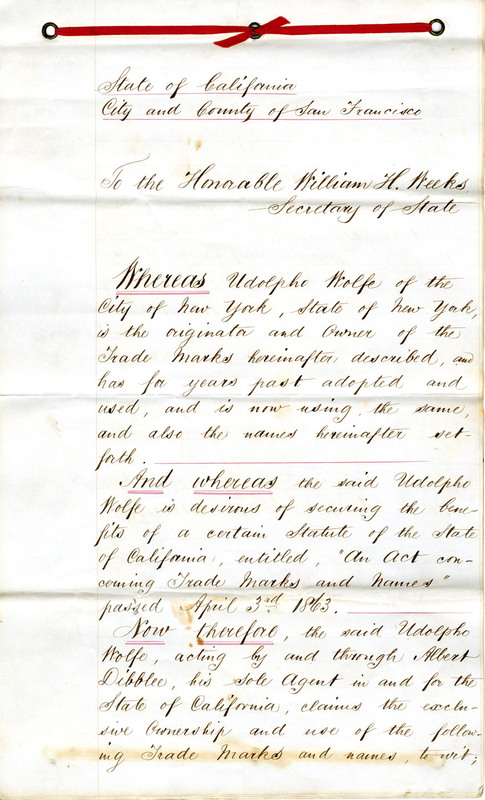 State of California
City and County of San Francisco
To the Honorable William H. Weeks
Secretary of State
Whereas Udolpho Wolfe of the
City of New York, State of New York,
is the originator and Owner of the
Trade Marks hereinafter described, and
has for years past adopted and
used, and is now using, the same,
and also the names hereinafter set-
forth.
And whereas the said Udolpho
Wolfe is desirous of securing the bene-
fits of a certain Statute of the State
of California, entitled, "An Act con-
cerning Trade Marks and Names"
passed April 3rd 1863.
Now therefore, the said Udolpho
Wolfe, acting by and through Albert
Dibblee, his Sole Agent in and for the
State of California, claims the exclu-
sive Ownership and use of the follow-
ing Trade Marks and names, to wit;